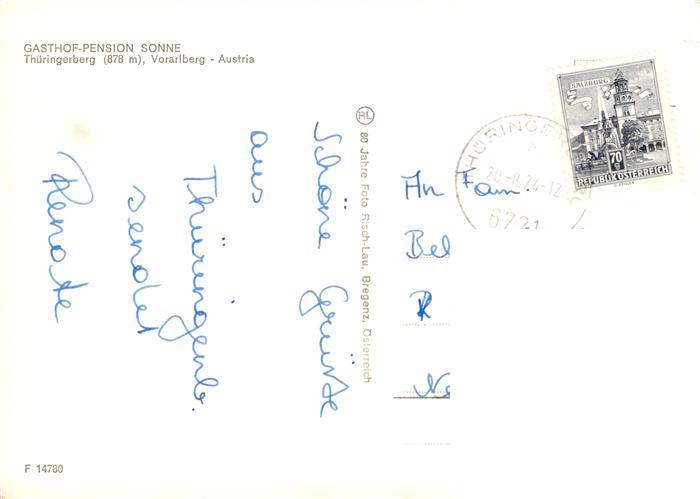 GASTHOF-PENSION SONNE
Thüringerberg (878 m), Vorarlberg - Austria
Schöne Grüße
aus
Thüringerb.
sendet
Renate
RL 80 Jahre Foto Risch-Lau, Bregenz, Österreich
SALZBURG
70 g
REPUBLIK ÖSTERREICH
THÜRINGERBERG
6721
An Fam.
Bel
R
Ne
F 14780